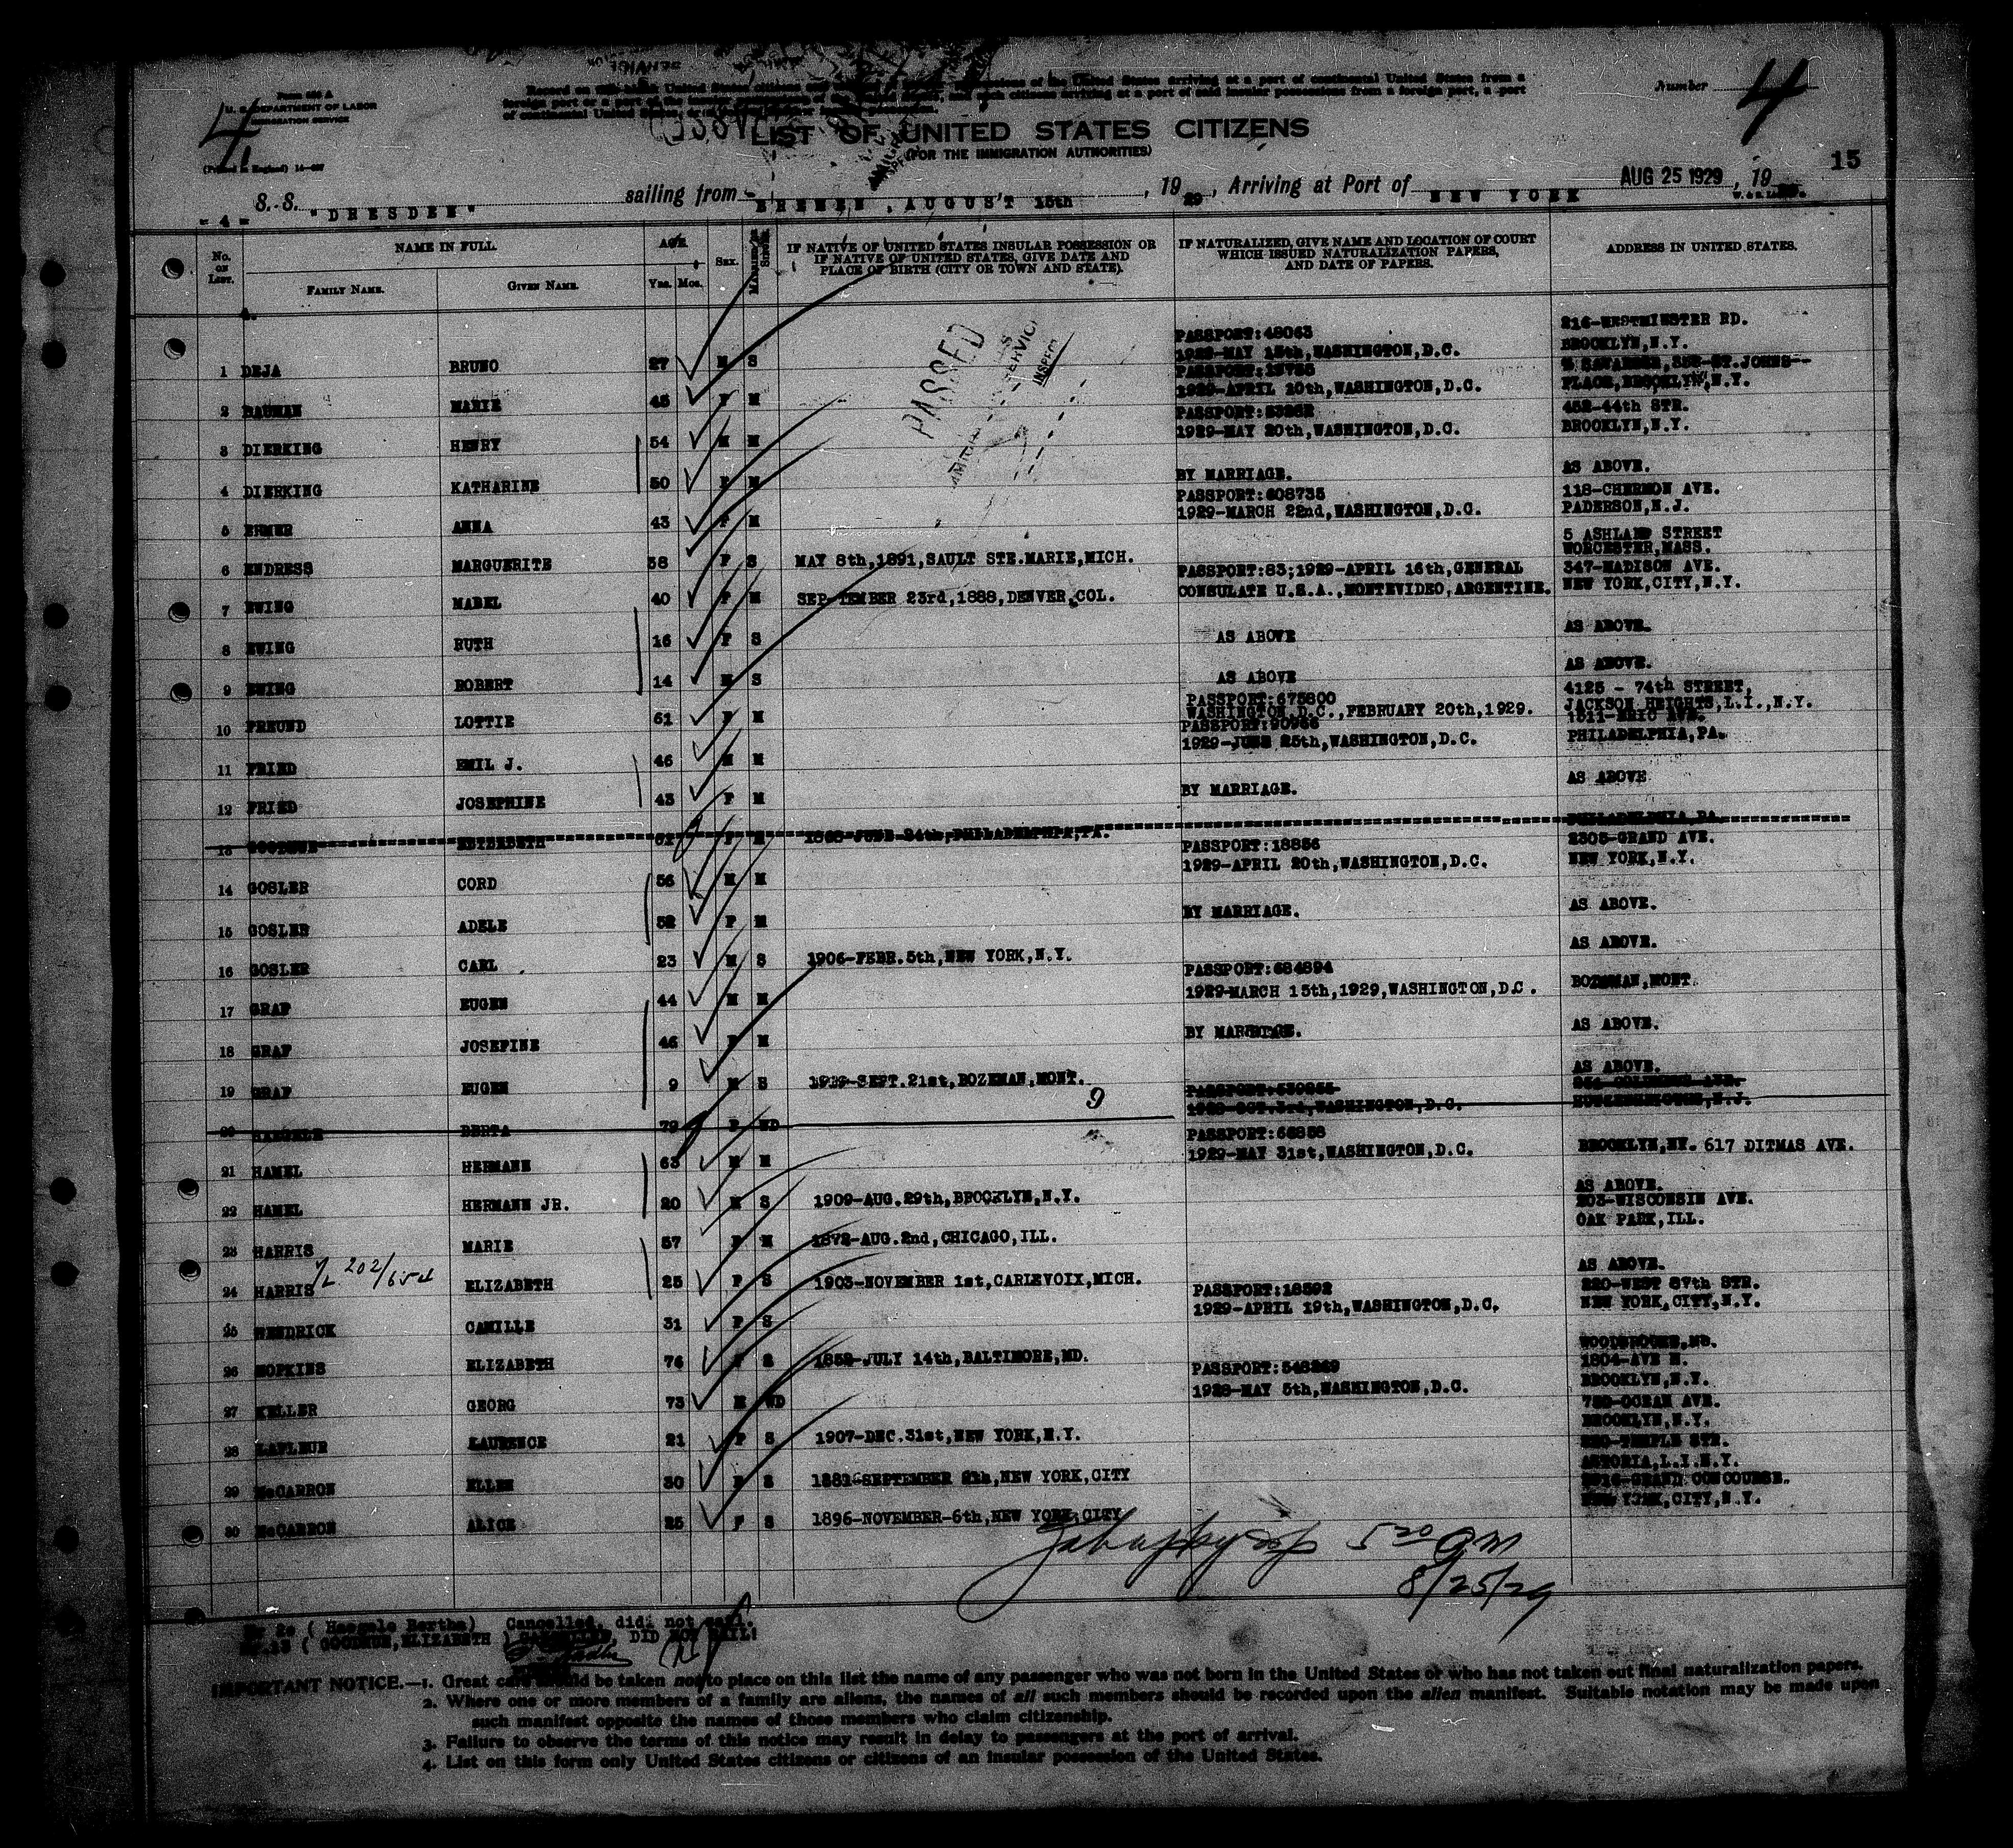 Form 500 A
U. S. DEPARTMENT OF LABOR
IMMIGRATION SERVICE
Number 4
4
LIST OF UNITED STATES CITIZENS
(FOR THE IMMIGRATION AUTHORITIES)
15
S. S. "DRESDEN" sailing from BREMEN, AUGUST 15th, 1929, Arriving at Port of NEW YORK AUG 25 1929, 19
- 4 -
No. ON LIST. NAME IN FULL. AGE. SEX. MARRIED OR SINGLE. IF NATIVE OF UNITED STATES INSULAR POSSESSION OR IF NATIVE OF UNITED STATES, GIVE DATE AND PLACE OF BIRTH (CITY OR TOWN AND STATE). IF NATURALIZED, GIVE NAME AND LOCATION OF COURT WHICH ISSUED NATURALIZATION PAPERS, AND DATE OF PAPERS. ADDRESS IN UNITED STATES.
FAMILY NAME. GIVEN NAME. Yrs. Mos.
PASSED
1 DEJA BRUNO 27 M S PASSPORT:48063 1929-MAY 15th, WASHINGTON, D.C. 216-WESTMINSTER RD. BROOKLYN, N.Y.
2 BAUMAN MARIE 45 F M 1929-APRIL 10th, WASHINGTON, D.C. PLACE, BROOKLYN, N.Y.
3 DIERKING HENRY 54 M M 1929-MAY 20th, WASHINGTON, D.C. 452-44th STR. BROOKLYN, N.Y.
4 DIERKING KATHARINE 50 F M BY MARRIAGE. AS ABOVE.
5 ERMER ANNA 43 F M PASSPORT:608735 1929-MARCH 22nd, WASHINGTON, D.C. 118-CHERMON AVE. PADERSON, N.J.
6 ENDRESS MARGUERITE 38 F S MAY 8th, 1891, SAULT STE. MARIE, MICH. 5 ASHLAND STREET WORCESTER, MASS.
7 EWING MABEL 40 F M SEPTEMBER 23rd, 1888, DENVER, COL. PASSPORT:83; 1929-APRIL 16th, GENERAL CONSULATE U.S.A., MONTEVIDEO, ARGENTINE. 347-MADISON AVE. NEW YORK, CITY, N.Y.
8 EWING RUTH 16 F S AS ABOVE AS ABOVE.
9 EWING ROBERT 14 M S AS ABOVE AS ABOVE.
10 FREUND LOTTIE 61 F M PASSPORT:675800 WASHINGTON, D.C., FEBRUARY 20th, 1929. 4125 - 74th STREET, JACKSON HEIGHTS, L.I., N.Y.
11 FRIED EMIL J. 46 M M 1929-JUNE 25th, WASHINGTON, D.C. 1511-ERIC AVE. PHILADELPHIA, PA.
12 FRIED JOSEPHINE 43 F M BY MARRIAGE. AS ABOVE
13 GOODHUE ELIZABETH 61 F M 1868-JUNE 24th, PHILADELPHIA, PA. PHILADELPHIA, PA.
14 GOSLER CORD 56 M M PASSPORT:18856 1929-APRIL 20th, WASHINGTON, D.C. 2305-GRAND AVE. NEW YORK, N.Y.
15 GOSLER ADELE 52 F M BY MARRIAGE. AS ABOVE.
16 GOSLER CARL 23 M S 1906-FEBR. 5th, NEW YORK, N.Y. AS ABOVE.
17 GRAF EUGEN 44 M M PASSPORT:684894 1929-MARCH 15th, 1929, WASHINGTON, D.C. BOZEMAN, MONT.
18 GRAF JOSEFINE 46 F M BY MARRIAGE. AS ABOVE.
19 GRAF EUGEN 9 M S 1919-SEPT. 21st, BOZEMAN, MONT. AS ABOVE.
9
20 HAEGELE BERTA 79 F WD 1928-OCT. 3rd, WASHINGTON, D.C.
21 HAMEL HERMANN 63 M M PASSPORT:66858 1929-MAY 31st, WASHINGTON, D.C. BROOKLYN, NY. 617 DITMAS AVE.
22 HAMEL HERMANN JR. 20 M S 1909-AUG. 29th, BROOKLYN, N.Y. AS ABOVE.
23 HARRIS MARIE 57 F M 1872-AUG. 2nd, CHICAGO, ILL. 203-WISCONSIN AVE. OAK PARK, ILL.
24 HARRIS ELIZABETH 25 F S 1903-NOVEMBER 1st, CARLEVOIX, MICH. AS ABOVE.
25 HENDRICK CAMILLE 31 F S PASSPORT:18592 1929-APRIL 19th, WASHINGTON, D.C. 220-WEST 87th STR. NEW YORK, CITY, N.Y.
26 HOPKINS ELIZABETH 76 F S 1852-JULY 14th, BALTIMORE, MD.
27 KELLER GEORG 73 M WD PASSPORT:548249 1928-MAY 5th, WASHINGTON, D.C. 1804-AVE N. BROOKLYN, N.Y.
28 LAFLEUR LAURENCE 21 F S 1907-DEC. 31st, NEW YORK, N.Y. OCEAN AVE. BROOKLYN, N.Y.
29 McCARRON ELLEN 30 F S NEW YORK, CITY TEMPLE STR. ASTORIA, L.I. N.Y.
30 McCARRON ALICE 25 F S 1896-NOVEMBER-6th, NEW YORK, CITY GRAND CONCOURSE. NEW YORK, CITY, N.Y.
5 30 am
8/25/29
Nr 20 (Haegele Bertha) Cancelled, did not sail.
Nr. 13 (GOODHUE, ELIZABETH) CANCELLED, DID NOT SAIL!
IMPORTANT NOTICE.—1. Great care should be taken not to place on this list the name of any passenger who was not born in the United States or who has not taken out final naturalization papers.
2. Where one or more members of a family are aliens, the names of all such members should be recorded upon the alien manifest. Suitable notation may be made upon
such manifest opposite the names of those members who claim citizenship.
3. Failure to observe the terms of this notice may result in delay to passengers at the port of arrival.
4. List on this form only United States citizens or citizens of an insular possession of the United States.